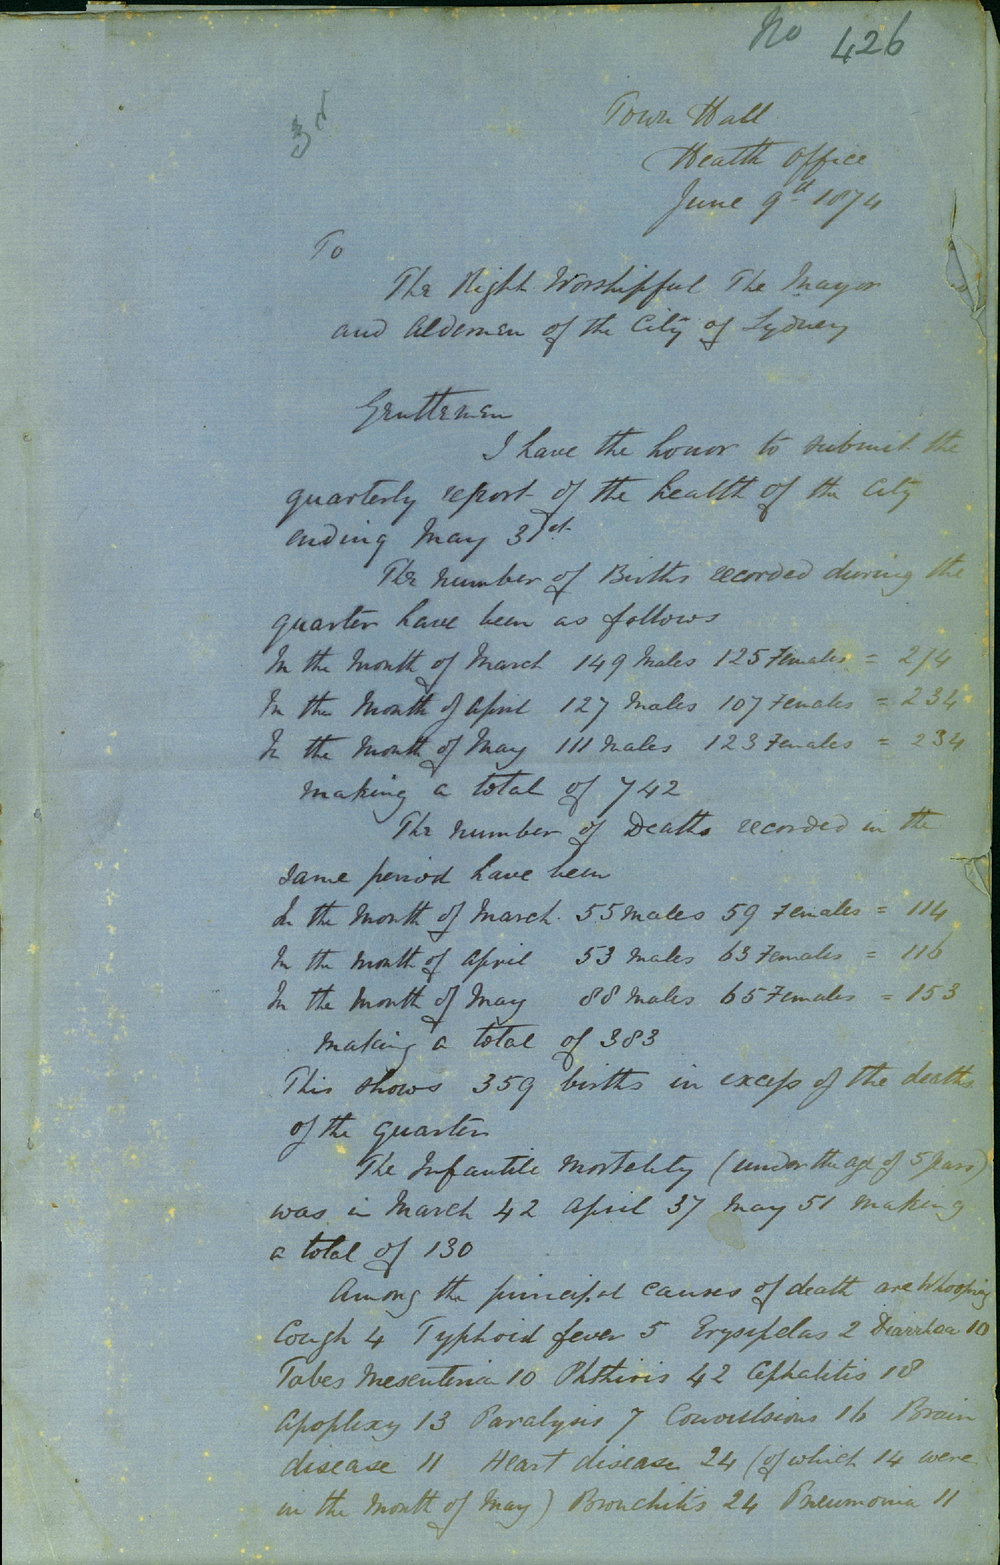 No 426
3d
Town Hall
Health Office
June 9th 1874
To
The Right Worshipful The Mayor
and Aldermen of the City of Sydney
Gentlemen
I have the honor to submit the
quarterly report of the health of the City
ending May 31st
The number of Births recorded during the
quarter have been as follows
In the Month of March 149 Males 125 Females = 274
In the Month of April 127 Males 107 Females = 234
In the Month of May 111 Males 123 Females = 234
making a total of 742
The number of Deaths recorded in the
same period have been
In the Month of March 55 Males 59 Females = 114
In the Month of April 53 Males 63 Females = 116
In the Month of May 88 Males 65 Females = 153
making a total of 383
This shows 359 births in excess of the deaths
of the quarter
The Infantile Mortality (under the age of 5 years)
was in March 42 April 37 May 51 making
a total of 130
Among the principal causes of death are Whooping
Cough 4 Typhoid fever 5 Erysipelas 2 Diarrhœa 10
Tabes Mesenterica 10 Phthisis 42 Cephalitis 18
Apoplexy 13 Paralysis 7 Convulsions 16 Brain
disease 11 Heart disease 24 (of which 14 were
in the Month of May) Bronchitis 24 Pneumonia 11